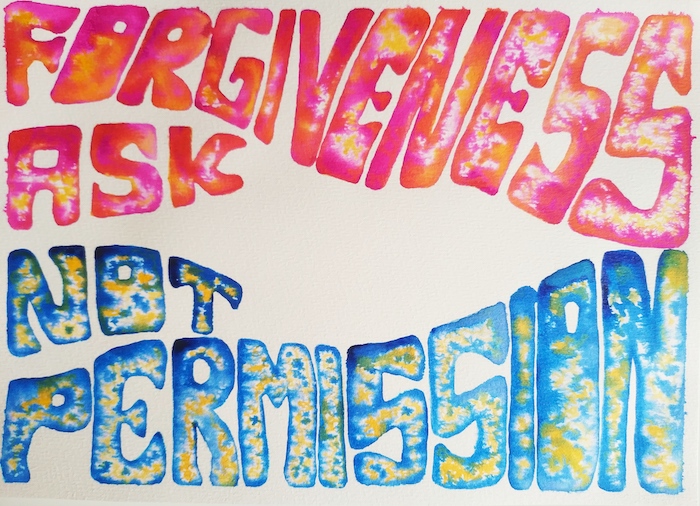 FORGIVENESS
ASK
NOT
PERMISSION